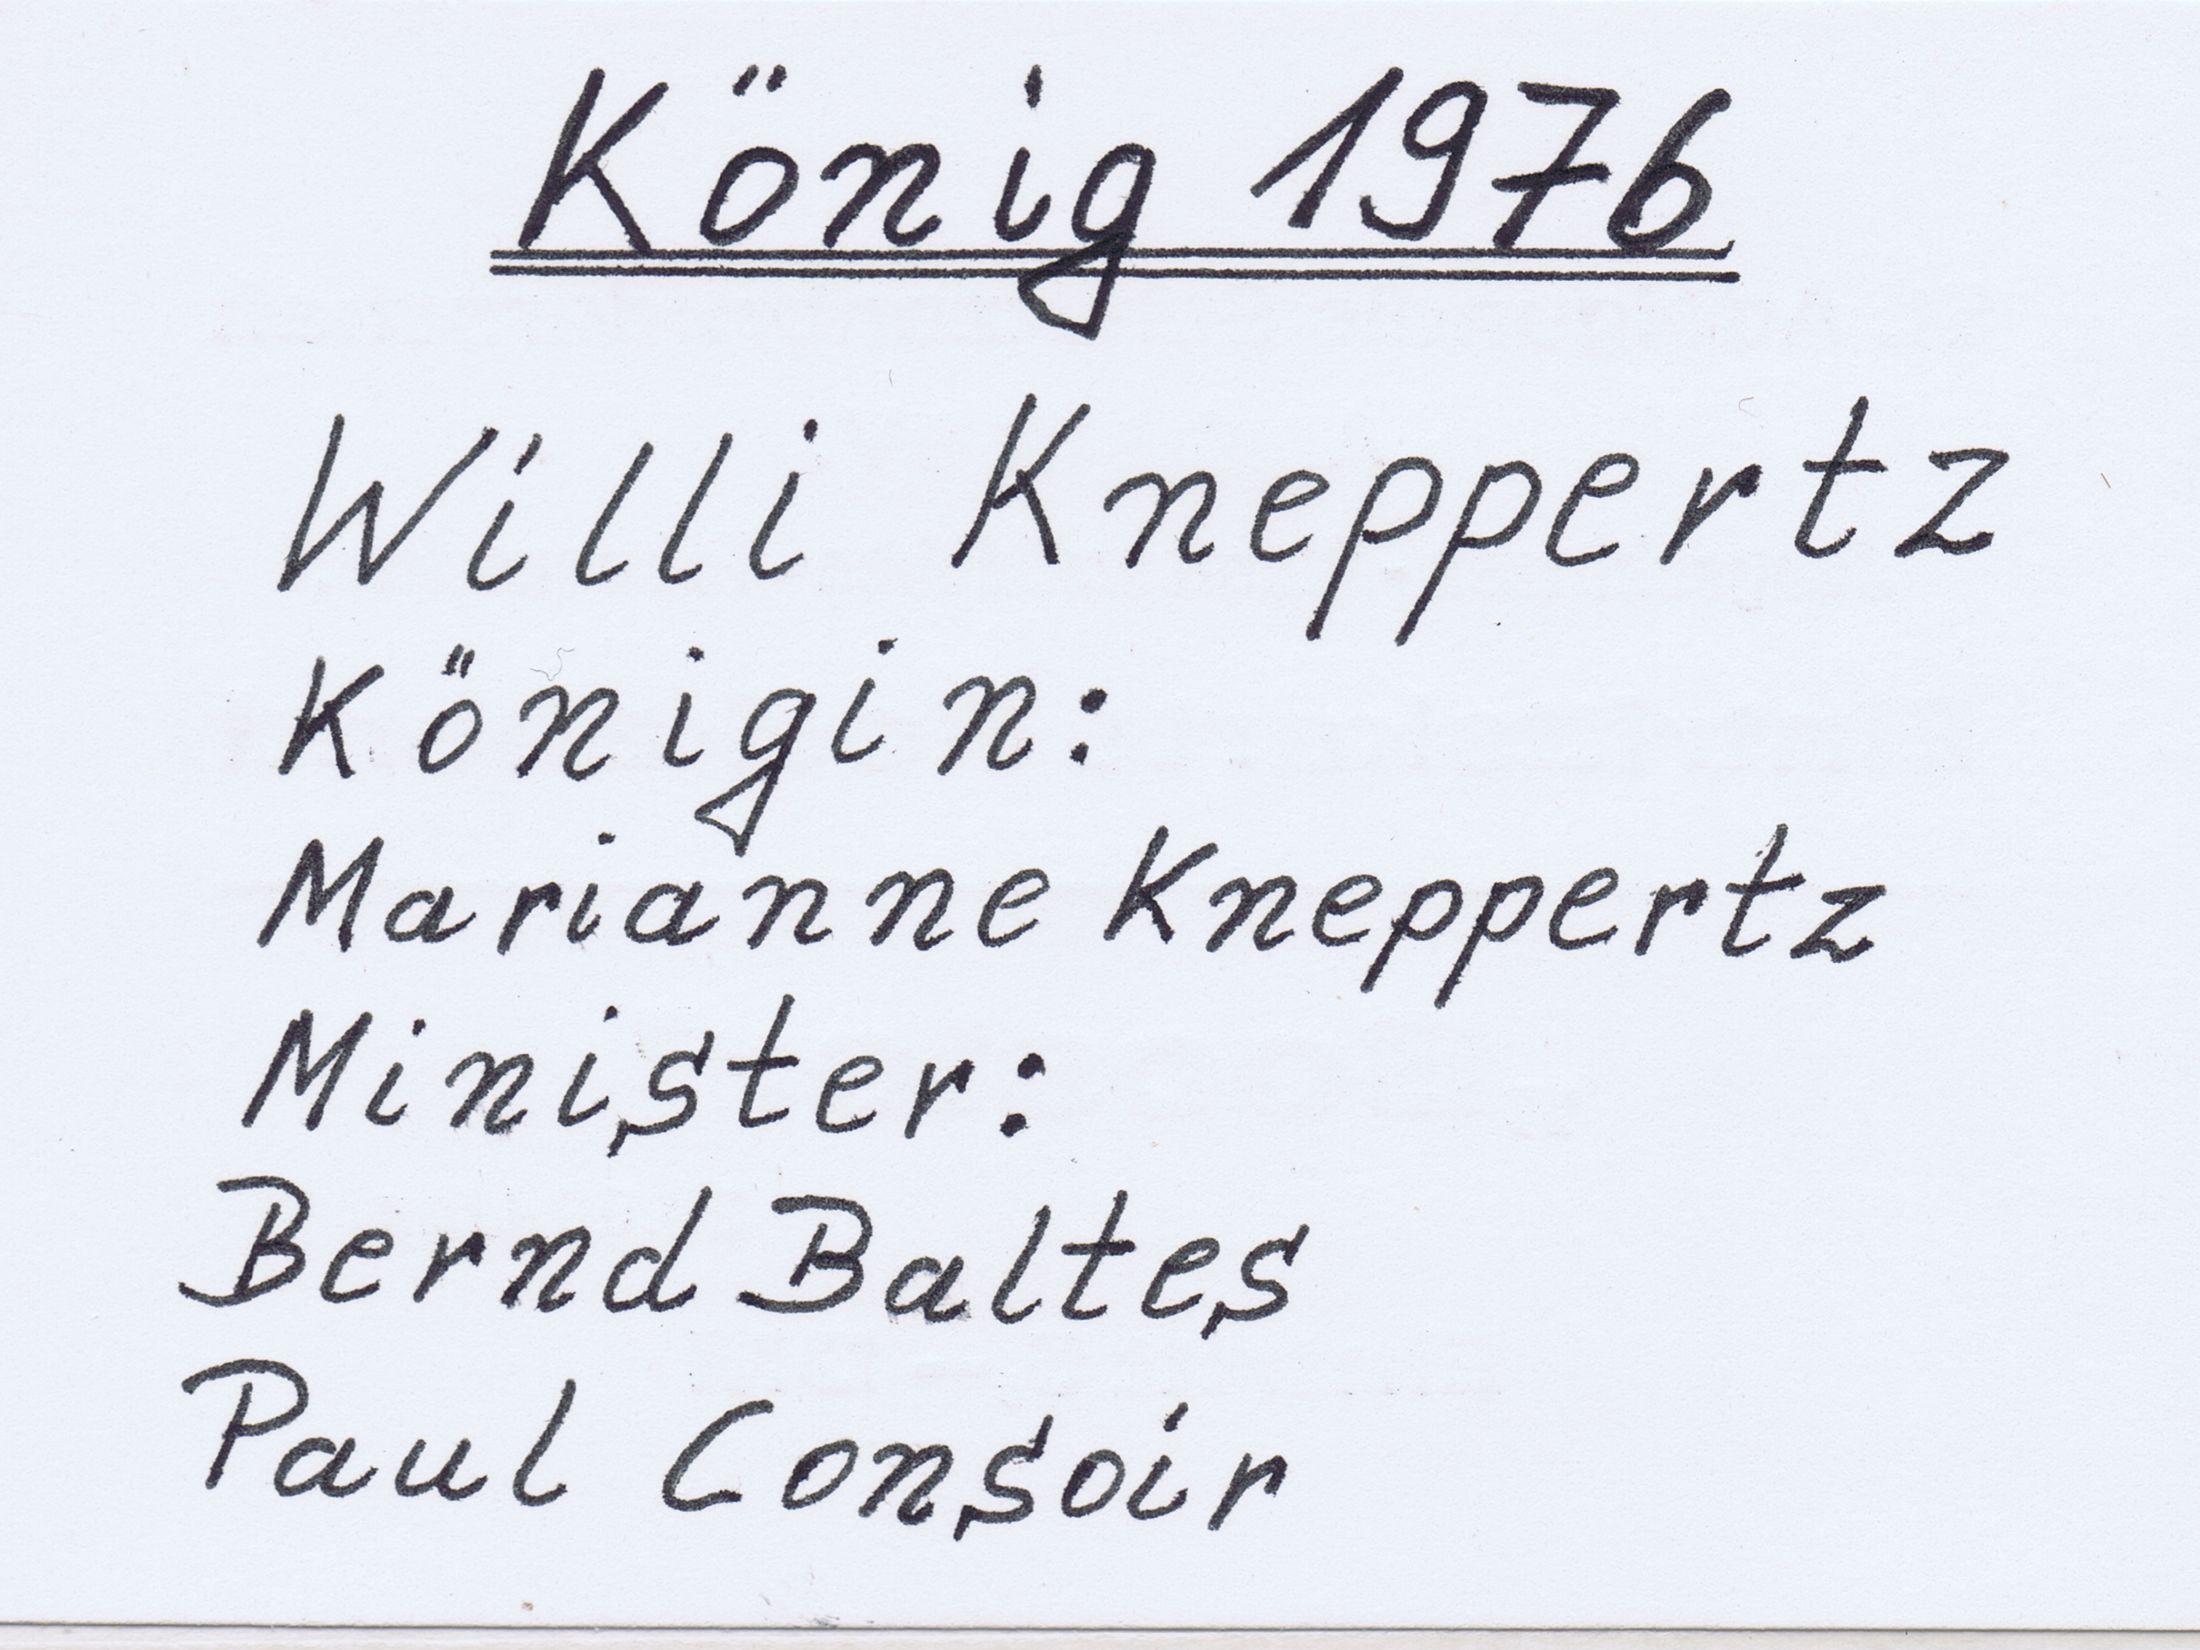 König 1976
Willi Kneppertz
Königin:
Marianne Kneppertz
Minister:
Bernd Baltes
Paul Consoir